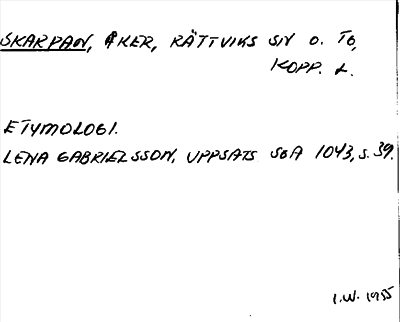 SKARPAN, ÅKER, RÄTTVIKS SN O. TG,
KOPP. L.
ETYMOLOGI.
LENA GABRIELSSON, UPPSATS SOA 1043, S. 39.
I.W. 1955